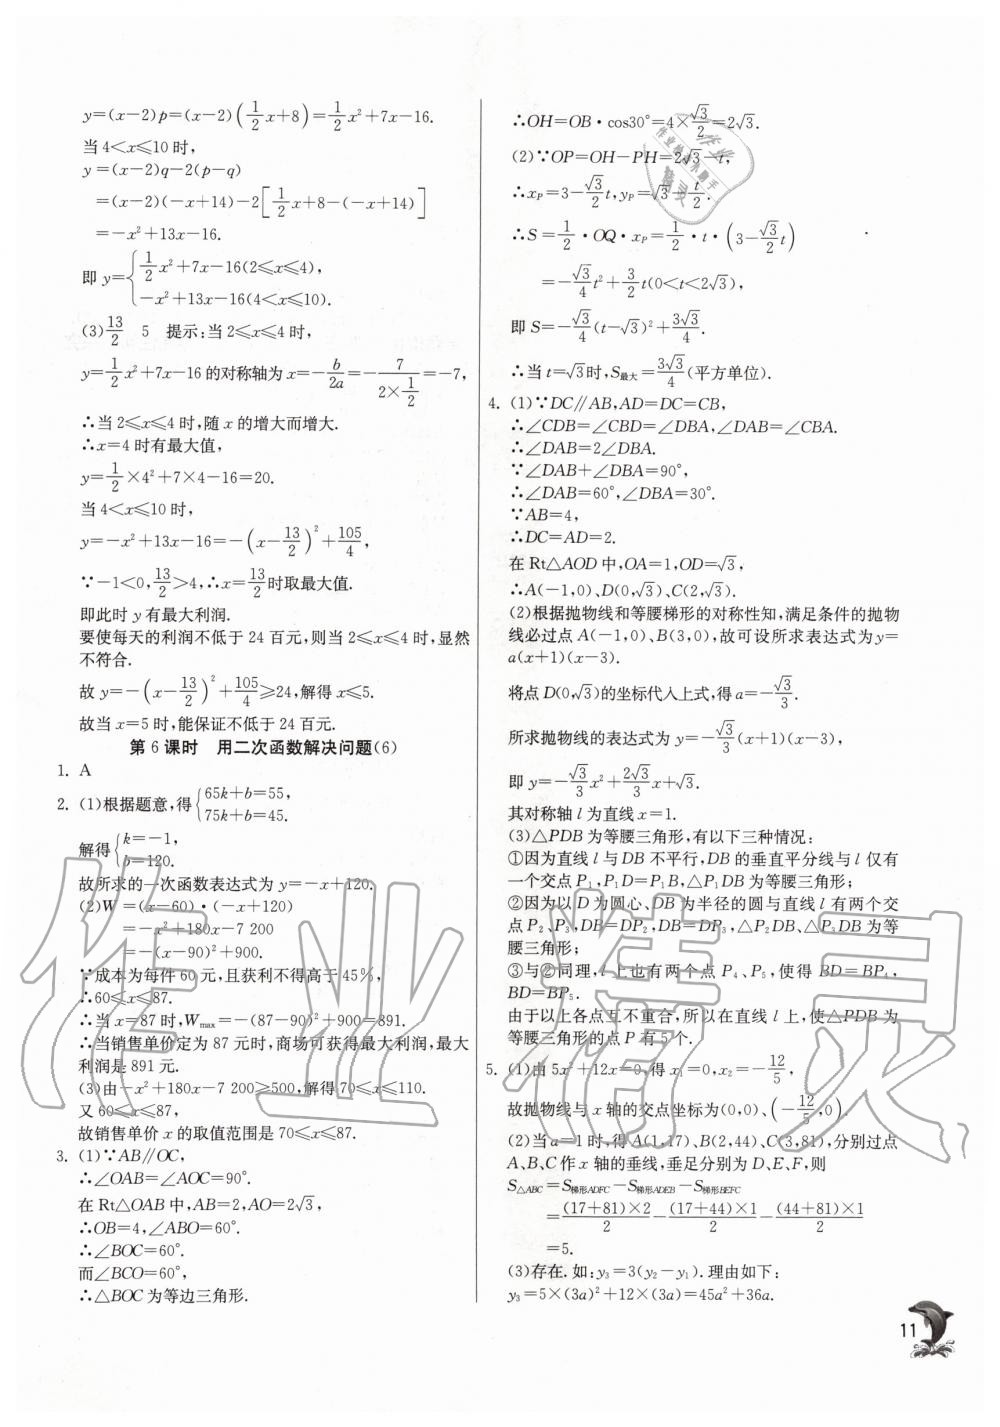 y=(x-2)p=(x-2)(1/2x+8)=1/2x²+7x-16.
当 4<x≤10 时,
y=(x-2)q-2(p-q)
=(x-2)(-x+14)-2[1/2x+8-(-x+14)]
=-x²+13x-16.
即 y={1/2x²+7x-16(2≤x≤4),
-x²+13x-16(4<x≤10).
(3)13/2 5 提示:当 2≤x≤4 时,
y=1/2x²+7x-16 的对称轴为 x=-b/2a=-7/(2×1/2)=-7,
∴当 2≤x≤4 时,随 x 的增大而增大.
∴x=4 时有最大值,
y=1/2×4²+7×4-16=20.
当 4<x≤10 时,
y=-x²+13x-16=-(x-13/2)²+105/4,
∵-1<0,13/2>4,∴x=13/2时取最大值.
即此时 y 有最大利润.
要使每天的利润不低于 24 百元,则当 2≤x≤4 时,显然
不符合.
故 y=-(x-13/2)²+105/4≥24,解得 x≤5.
故当 x=5 时,能保证不低于 24 百元.
第 6 课时 用二次函数解决问题(6)
1. A
2. (1)根据题意,得{65k+b=55,
75k+b=45.
解得{k=-1,
b=120.
故所求的一次函数表达式为 y=-x+120.
(2)W=(x-60)·(-x+120)
=-x²+180x-7 200
=-(x-90)²+900.
∵成本为每件 60 元,且获利不得高于 45%,
∴60≤x≤87.
∴当 x=87 时,Wmax=-(87-90)²+900=891.
∴当销售单价定为 87 元时,商场可获得最大利润,最大
利润是 891 元.
(3)由-x²+180x-7 200≥500,解得 70≤x≤110.
又 60≤x≤87,
故销售单价 x 的取值范围是 70≤x≤87.
3. (1)∵AB∥OC,
∴∠OAB=∠AOC=90°.
在 Rt△OAB 中,AB=2,AO=2√3,
∴OB=4,∠ABO=60°.
∴∠BOC=60°.
而∠BCO=60°,
∴△BOC 为等边三角形.
∴OH=OB·cos30°=4×√3/2=2√3.
(2)∵OP=OH-PH=2√3-t,
∴xP=3-√3/2t,yP=√3-t/2.
∴S=1/2·OQ·xP=1/2·t·(3-√3/2t)
=-√3/4t²+3/2t(0<t<2√3),
即 S=-√3/4(t-√3)²+3√3/4.
∴当 t=√3时,S最大=3√3/4(平方单位).
4. (1)∵DC∥AB,AD=DC=CB,
∴∠CDB=∠CBD=∠DBA,∠DAB=∠CBA.
∴∠DAB=2∠DBA.
∵∠DAB+∠DBA=90°,
∴∠DAB=60°,∠DBA=30°.
∵AB=4,
∴DC=AD=2.
在 Rt△AOD 中,OA=1,OD=√3,
∴A(-1,0)、D(0,√3)、C(2,√3).
(2)根据抛物线和等腰梯形的对称性知,满足条件的抛物
线必过点 A(-1,0)、B(3,0),故可设所求表达式为 y=
a(x+1)(x-3).
将点 D(0,√3)的坐标代入上式,得 a=-√3/3.
所求抛物线的表达式为 y=-√3/3(x+1)(x-3),
即 y=-√3/3x²+2√3/3x+√3.
其对称轴 l 为直线 x=1.
(3)△PDB 为等腰三角形,有以下三种情况:
①因为直线 l 与 DB 不平行,DB 的垂直平分线与 l 仅有
一个交点 P₁,P₁D=P₁B,△P₁DB 为等腰三角形;
②因为以 D 为圆心、DB 为半径的圆与直线 l 有两个交
点 P₂、P₃,DB=DP₂,DB=DP₃,△P₂DB、△P₃DB 为等
腰三角形;
③与②同理,l 上也有两个点 P₄、P₅,使得 BD=BP₄,
BD=BP₅.
由于以上各点互不重合,所以在直线 l 上,使△PDB 为
等腰三角形的点 P 有 5 个.
5. (1)由 5x²+12x=0,得 x₁=0,x₂=-12/5,
故抛物线与 x 轴的交点坐标为(0,0)、(-12/5,0).
(2)当 a=1 时,得 A(1,17)、B(2,44)、C(3,81),分别过点
A、B、C 作 x 轴的垂线,垂足分别为 D、E、F,则
S△ABC=S梯形ADFC-S梯形ADEB-S梯形BEFC
=(17+81)×2/2-(17+44)×1/2-(44+81)×1/2
=5.
(3)存在.如:y₃=3(y₂-y₁).理由如下:
y₃=5×(3a)²+12×(3a)=45a²+36a.
11
作业精灵